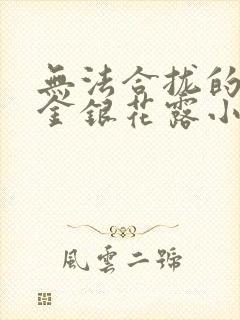 無法合拢的
金銀花露小
風雲二號